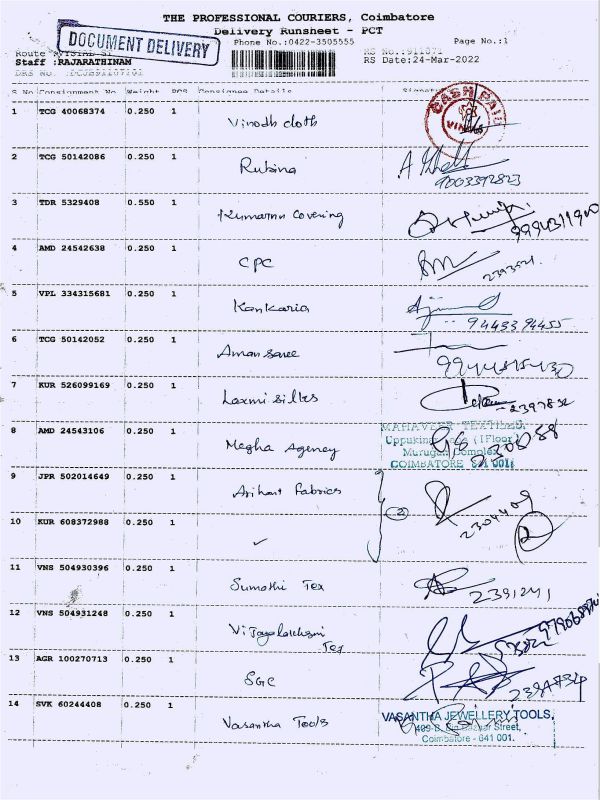 THE PROFESSIONAL COURIERS, Coimbatore
Delivery Runsheet - PCT
DOCUMENT DELIVERY
Phone No.:0422-3505555
Page No.:1
Route
RS No.:911071
Staff :RAJARATHINAM
RS Date:24-Mar-2022
DRS No.
S No Consignment No Weight PCS Consignee Details Signature
CASH PAID
1 TCG 40068374 0.250 1 Vinodh cloth
2 TCG 50142086 0.250 1 Rubina
9003392823
3 TDR 5329408 0.550 1 Kumaran Covering
9994311900
4 AMD 24542638 0.250 1 CPC
5 VPL 334315681 0.250 1 Kankaria
9443394455
6 TCG 50142052 0.250 1 Aman saree
7 KUR 526099169 0.250 1 Laxmi silks
2397832
MAHAVEER TEXTILES,
8 AMD 24543106 0.250 1 Megha Agency
(IFloor)
Murugan Complex
COIMBATORE 641 001.
9 JPR 502014649 0.250 1 Arihant Fabrics
2304409
2
10 KUR 608372988 0.250 1 ✓
2
11 VNS 504930396 0.250 1 Sumathi Tex
2391241
12 VNS 504931248 0.250 1 Vijayalakshmi
Tex
13 AGR 100270713 0.250 1 SGC
2384734
14 SVK 60244408 0.250 1 Vasantha Tools
VASANTHA JEWELLERY TOOLS,
Street,
Coimbatore - 641 001.